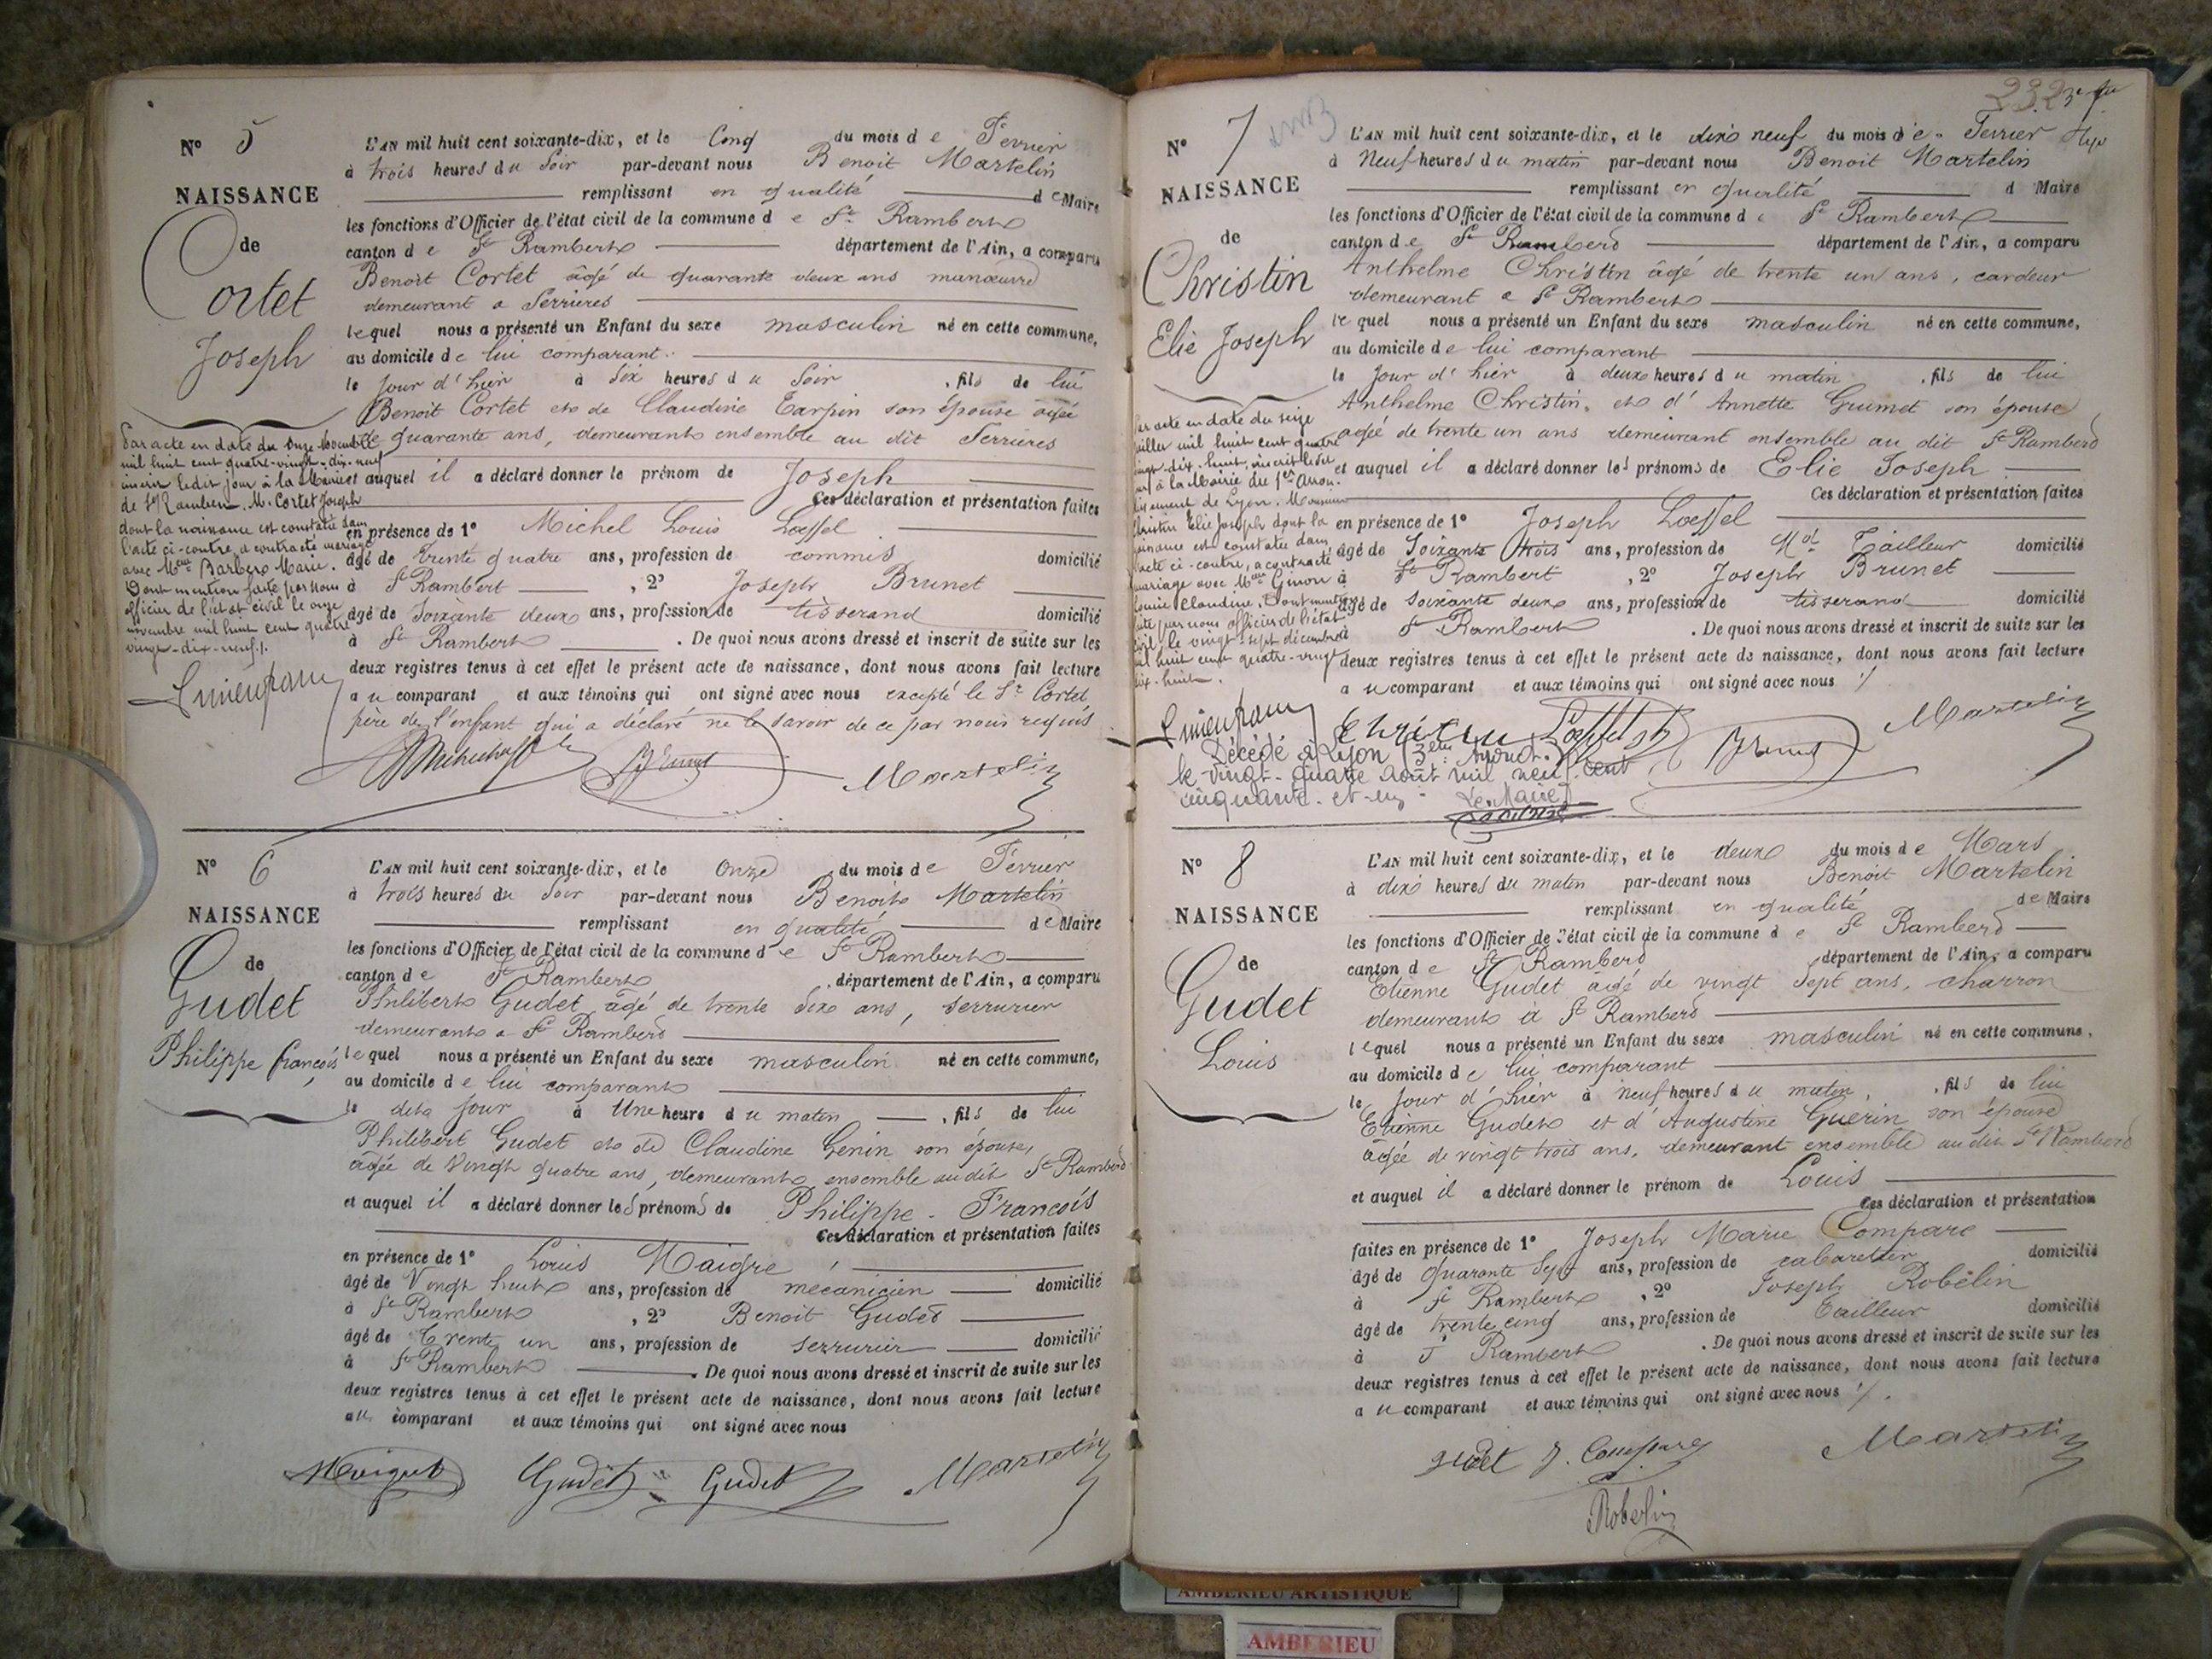 N° 5
NAISSANCE
de
Cortet
Joseph
L'AN mil huit cent soixante-dix, et le Cinq du mois de Février
à trois heures du Soir par-devant nous Benoit Martelin
remplissant en qualité de Maire
les fonctions d'Officier de l'état civil de la commune de St Rambert
canton de St Rambert département de l'Ain, a comparu
Benoit Cortet âgé de quarante deux ans manœuvre
demeurant a Serrières
lequel nous a présenté un Enfant du sexe masculin né en cette commune,
au domicile de lui comparant
le jour d'hier à Six heures du Soir , fils de lui
Benoit Cortet et de Claudine Tarpin son épouse âgée
de quarante ans, demeurant ensemble au dit Serrières
et auquel il a déclaré donner le prénom de Joseph
Ces déclaration et présentation faites
en présence de 1° Michel Louis Loeffel
âgé de trente quatre ans, profession de commis domicilié
à St Rambert , 2° Joseph Brunet
âgé de Soixante deux ans, profession de tisserand domicilié
à St Rambert . De quoi nous avons dressé et inscrit de suite sur les
deux registres tenus à cet effet le présent acte de naissance, dont nous avons fait lecture
au comparant et aux témoins qui ont signé avec nous excepté le Sr Cortet
père de l'enfant qui a déclaré ne le savoir de ce par nous requis
Brunet Martelin
Par acte en date du onze Novembre
mil huit cent quatre-vingt-dix-neuf
inscrit ledit jour à la Mairie
de St Rambert. M. Cortet Joseph
dont la naissance est constatée dans
l'acte ci-contre, a contracté mariage
avec Melle Barbero Marie.
Dont mention faite par nous
officier de l'état civil le onze
novembre mil huit cent quatre
vingt-dix-neuf.
N° 6
NAISSANCE
de
Gudet
Philippe françois
L'AN mil huit cent soixante-dix, et le Onze du mois de Février
à trois heures du Soir par-devant nous Benoit Martelin
remplissant en qualité de Maire
les fonctions d'Officier de l'état civil de la commune de St Rambert
canton de St Rambert département de l'Ain, a comparu
Philibert Gudet âgé de trente Six ans, serrurier
demeurant a St Rambert
lequel nous a présenté un Enfant du sexe masculin né en cette commune,
au domicile de lui comparant
le dit jour à Une heure du matin , fils de lui
Philibert Gudet et de Claudine Génin son épouse,
âgée de Vingt quatre ans, demeurant ensemble audit St Rambert
et auquel il a déclaré donner les prénoms de Philippe - François
Ces déclaration et présentation faites
en présence de 1° Louis Maigre
âgé de Vingt huit ans, profession de mécanicien domicilié
à St Rambert , 2° Benoit Gudet
âgé de Trente un ans, profession de serrurier domicilié
à St Rambert . De quoi nous avons dressé et inscrit de suite sur les
deux registres tenus à cet effet le présent acte de naissance, dont nous avons fait lecture
au comparant et aux témoins qui ont signé avec nous
Gudet Gudet Martelin
232
N° 7
NAISSANCE
de
Christin
Elie Joseph
L'AN mil huit cent soixante-dix, et le dix neuf du mois de Fevrier
à Neuf heures du matin par-devant nous Benoit Martelin
remplissant en qualité d Maire
les fonctions d'Officier de l'état civil de la commune de St Rambert
canton de St Rambert département de l'Ain, a comparu
Anthelme Christin âgé de trente un ans, cardeur
demeurant a St Rambert
lequel nous a présenté un Enfant du sexe masculin né en cette commune,
au domicile de lui comparant
le jour d'hier à deux heures du matin , fils de lui
Anthelme Christin, et d'Annette Guimet son épouse
agée de trente un ans demeurant ensemble au dit St Rambert
et auquel il a déclaré donner les prénoms de Elie Joseph
Ces déclaration et présentation faites
en présence de 1° Joseph Loeffel
âgé de Soixante trois ans, profession de Md Tailleur domicilié
à St Rambert , 2° Joseph Brunet
âgé de soixante deux ans, profession de tisserand domicilié
à St Rambert . De quoi nous avons dressé et inscrit de suite sur les
deux registres tenus à cet effet le présent acte de naissance, dont nous avons fait lecture
au comparant et aux témoins qui ont signé avec nous
Christin Loeffel Brunet Martelin
Par acte en date du seize
juillet mil huit cent quatre
vingt-dix-huit, inscrit ledit
jour à la Mairie du 1er Arron-
dissement de Lyon, Monsieur
Christin Elie Joseph dont la
naissance est constatée dans
l'acte ci-contre, a contracté
mariage avec Melle Ginon
Louise Claudine, Dont mention
faite par nous officier de l'état
civil, le vingt-sept décembre
mil huit cent quatre-vingt
dix-huit.
Décédé à Lyon (3eme Arrondt.)
le vingt-quatre août mil neuf cent
cinquante-et-un. Le Maire
N° 8
NAISSANCE
de
Gudet
Louis
L'AN mil huit cent soixante-dix, et le deux du mois de Mars
à dix heures du matin par-devant nous Benoit Martelin
remplissant en qualité de Maire
les fonctions d'Officier de l'état civil de la commune de St Rambert
canton de St Rambert département de l'Ain, a comparu
Etienne Gudet âgé de vingt Sept ans, charron
demeurant à St Rambert
lequel nous a présenté un Enfant du sexe masculin né en cette commune,
au domicile de lui comparant
le jour d'hier à neuf heures du matin , fils de lui
Etienne Gudet et d'Augustine Guerin son épouse
agée de vingt trois ans, demeurant ensemble audit St Rambert
et auquel il a déclaré donner le prénom de Louis
Ces déclaration et présentation
faites en présence de 1° Joseph Marie Compare
âgé de quarante Sept ans, profession de cabaretier domicilié
à St Rambert , 2° Joseph Robelin
âgé de trente cinq ans, profession de Tailleur domicilié
à St Rambert . De quoi nous avons dressé et inscrit de suite sur les
deux registres tenus à cet effet le présent acte de naissance, dont nous avons fait lecture
au comparant et aux témoins qui ont signé avec nous
Gudet J. Compare Martelin
Robelin
AMBERIEU ARTISTIQUE
AMBERIEU